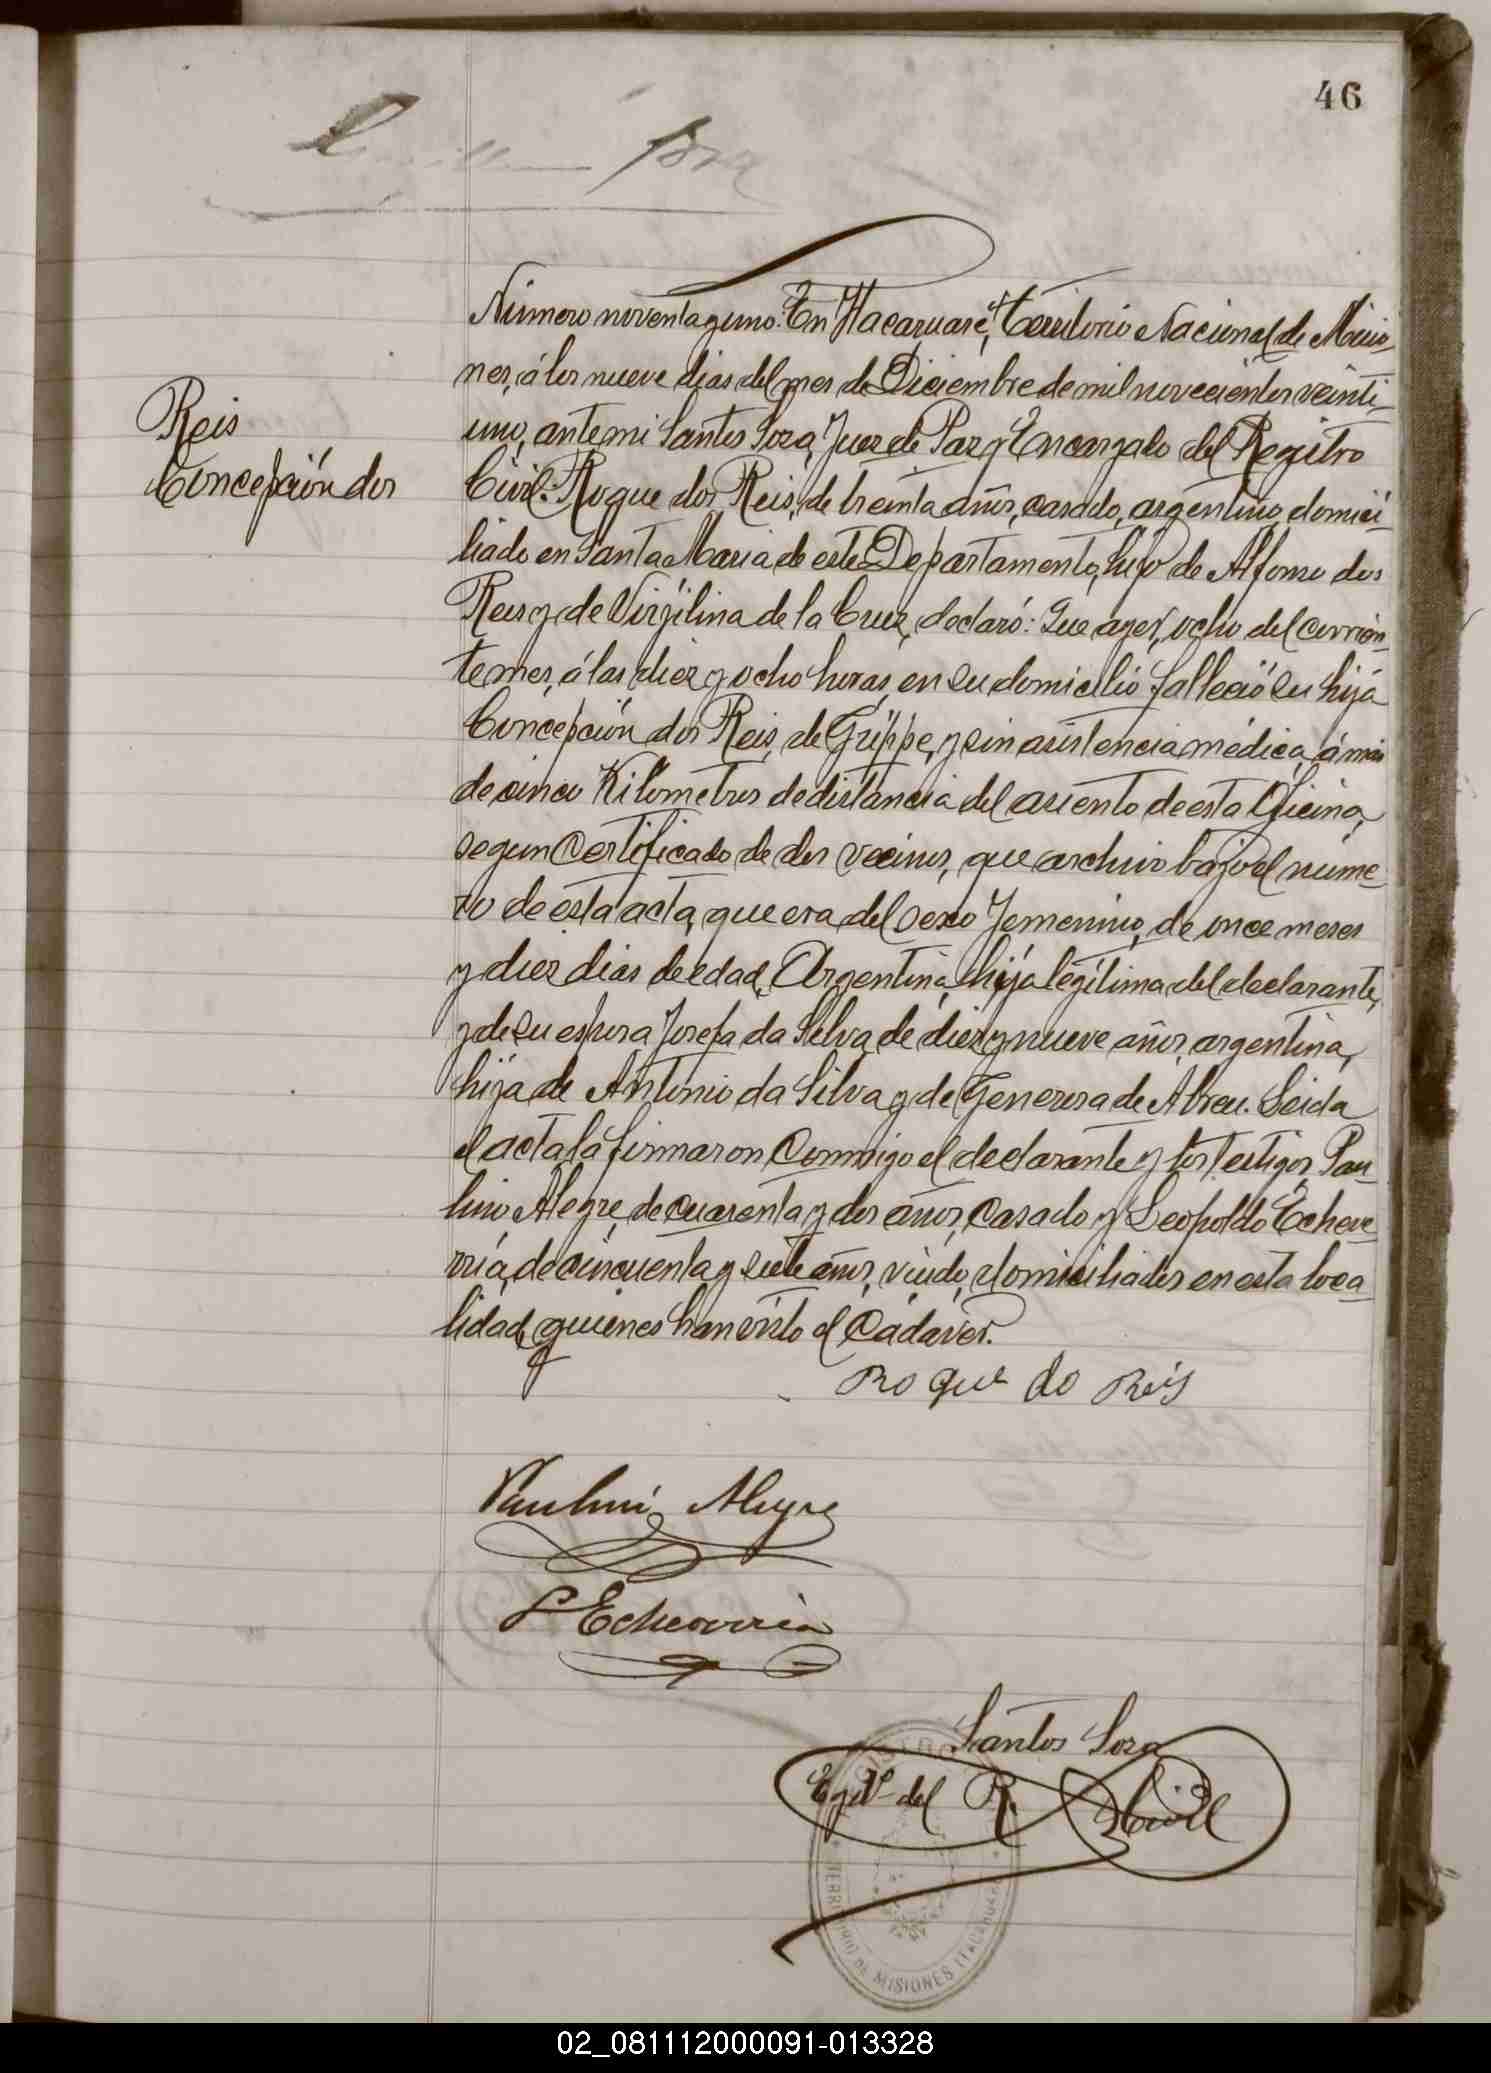 46
Número noventa y uno. En Itacaruaré, Territorio Nacional de Misio-
nes, á los nueve dias del mes de Diciembre de mil novecientos veinti-
uno, ante mi Santos Sosa, Juez de Paz y Encargado del Registro
Reis
Concepción dos
Civil: Roque dos Reis, de treinta años, casado, argentino, domici-
liado en Santa Maria de este Departamento, hijo de Alfonso dos
Reis y de Virgilina de la Cruz, declaró: Que ayer, ocho del corrien-
te mes, á las diez y ocho horas, en su domicilio falleció su hija
Concepción dos Reis, de Grippe, y sin asistencia médica, á mas
de cinco Kilometros de distancia del asiento de esta Oficina,
segun certificado de dos vecinos, que archivo bajo el núme-
ro de esta acta, que era del sexo Femenino, de once meses
y diez dias de edad, Argentina, hija legítima del declarante,
y de su esposa Josefa da Silva, de diez y nueve años, argentina,
hija de Antonio da Silva y de Generosa de Abreu. Leida
el acta la firmaron conmigo el declarante y los testigos, Pau-
lino Alegre, de cuarenta y dos años, casado y Leopoldo Echeve-
rria, de cincuenta y siete años, viudo, domiciliados en esta loca-
lidad, quienes han visto el Cadáver.
Roque do Reis
Paulino Alegre
L Echeverria
Santos Sosa
Egdo. del R. Civil
TERRITORIO DE MISIONES ITACARUARE
02_081112000091-013328